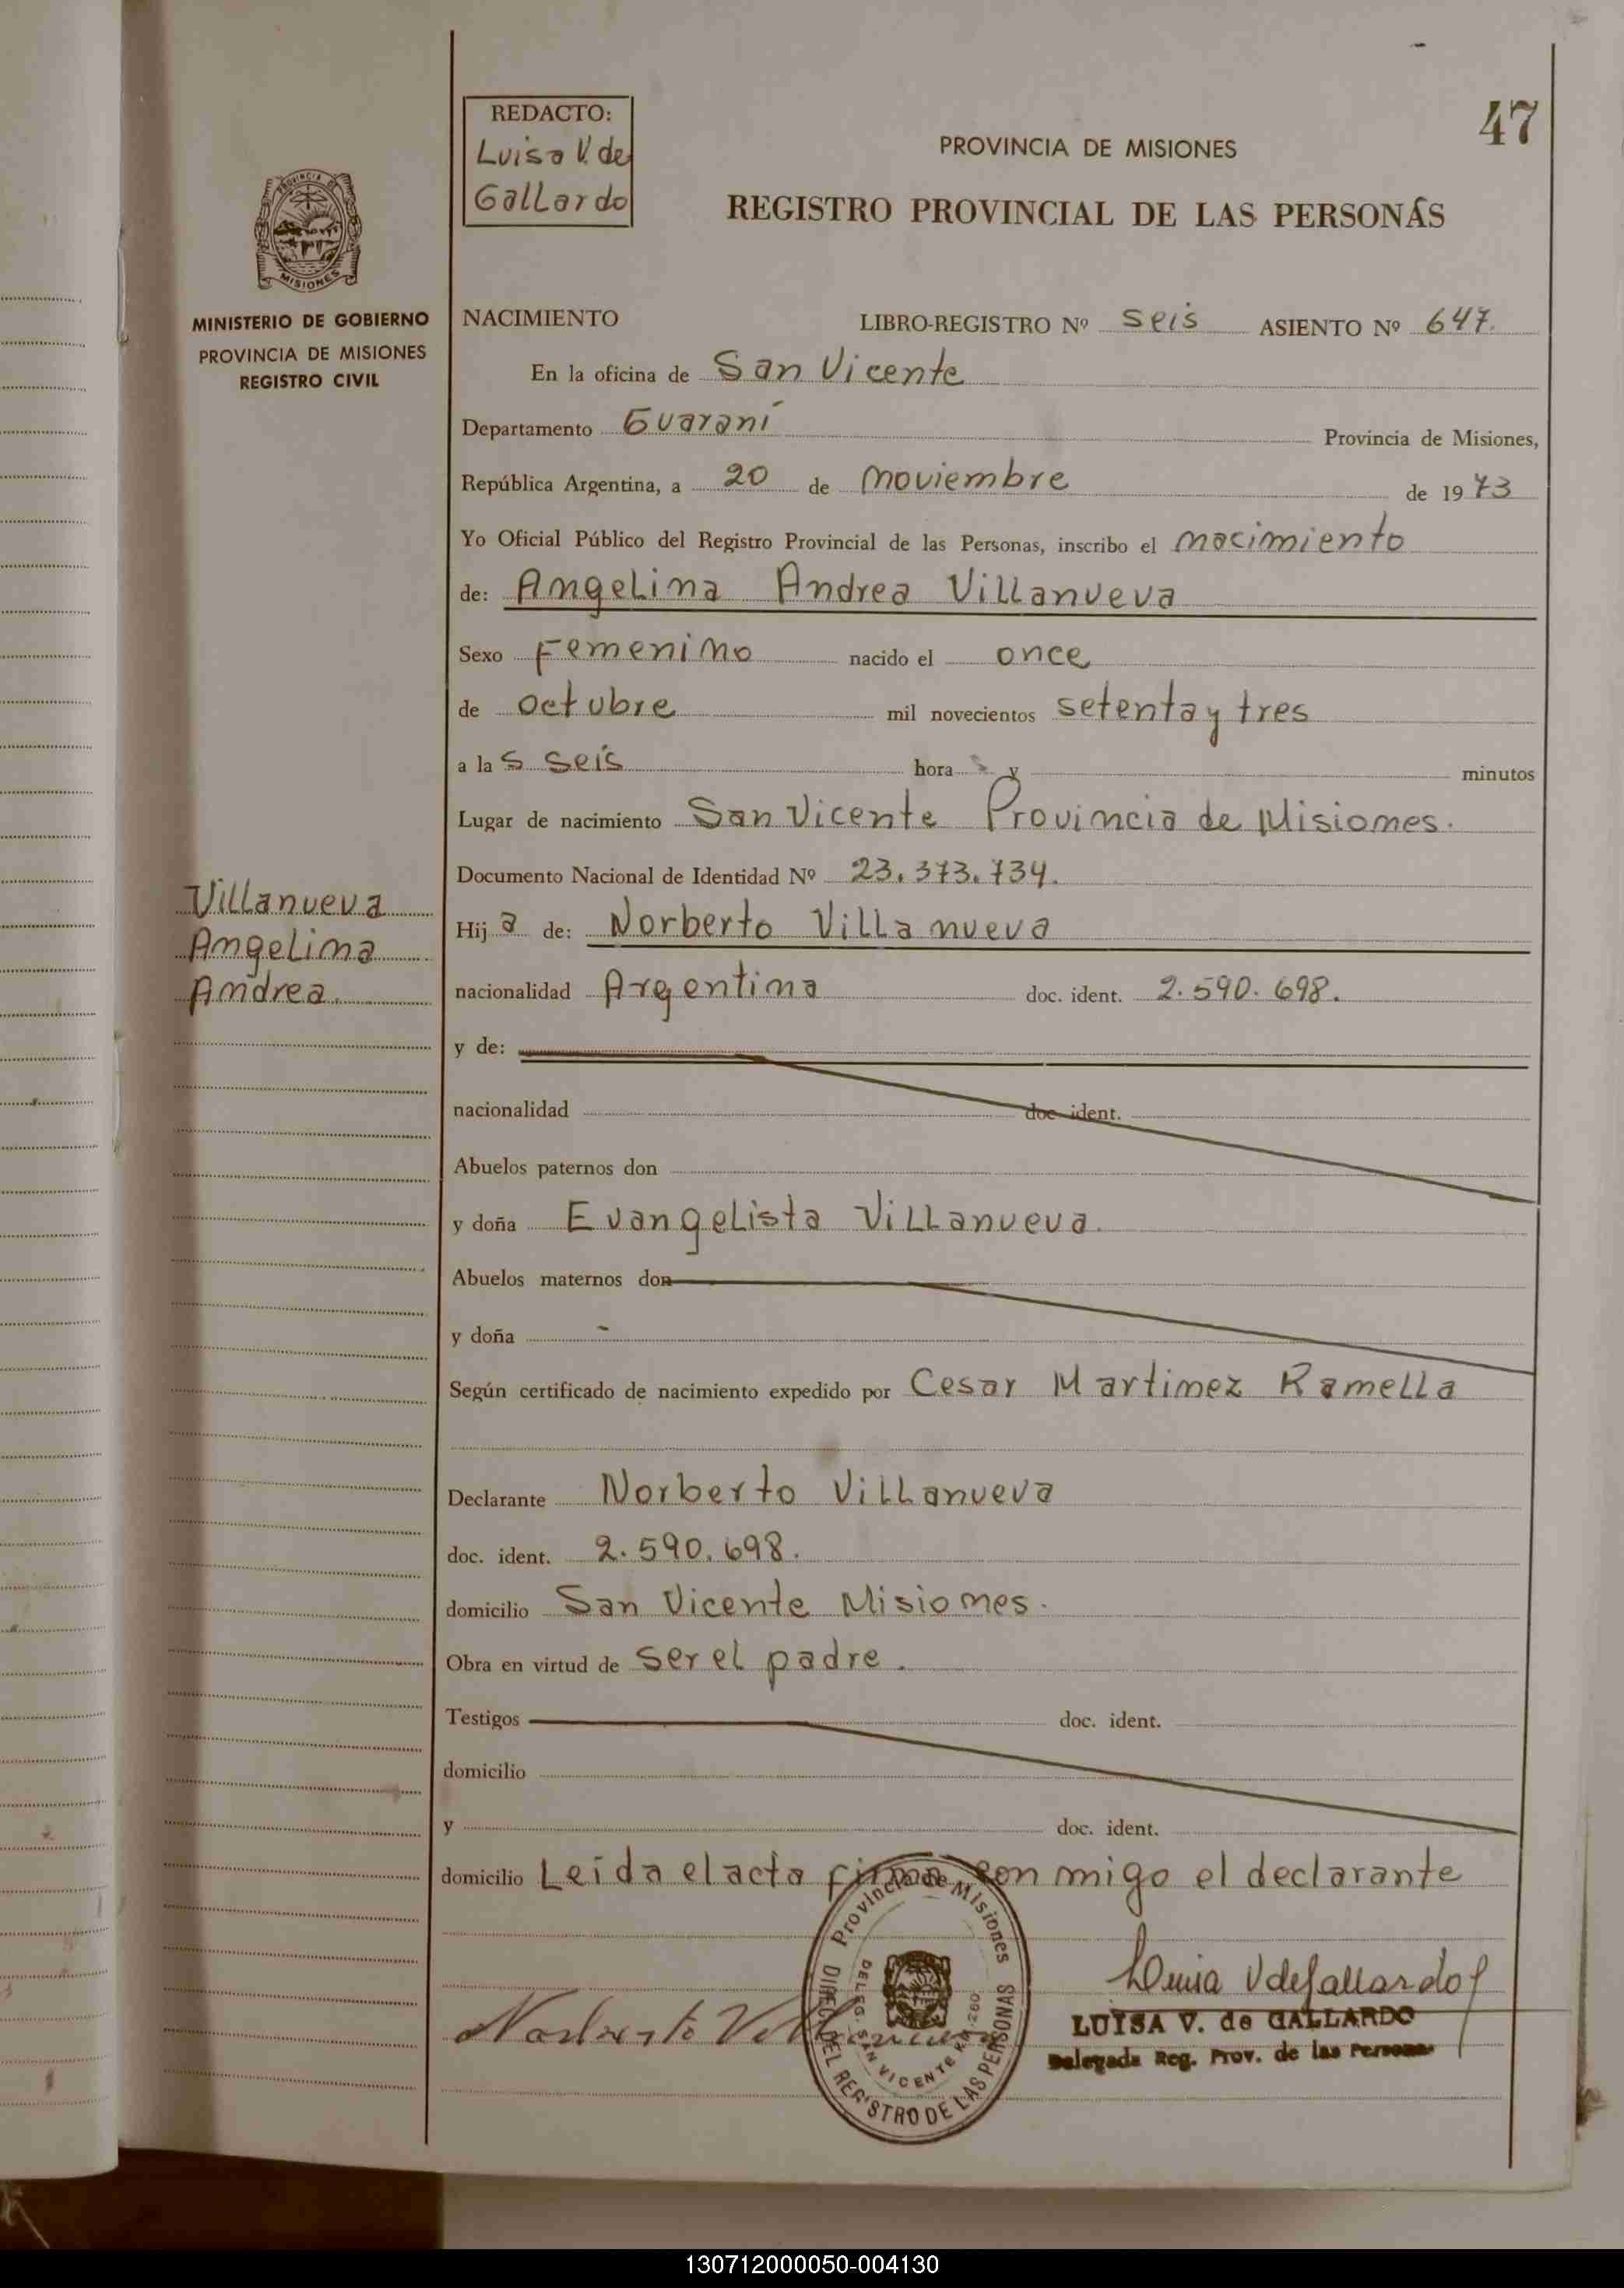 REDACTO:
Luisa V. de
Gallardo
47
PROVINCIA DE MISIONES
REGISTRO PROVINCIAL DE LAS PERSONAS
PROVINCIA DE
MISIONES
MINISTERIO DE GOBIERNO
PROVINCIA DE MISIONES
REGISTRO CIVIL
NACIMIENTO LIBRO-REGISTRO Nº seis ASIENTO Nº 647.
En la oficina de San Vicente
Departamento Guaraní Provincia de Misiones,
República Argentina, a 20 de noviembre de 1973
Yo Oficial Público del Registro Provincial de las Personas, inscribo el nacimiento
de: Angelina Andrea Villanueva
Sexo Femenino nacido el once
de octubre mil novecientos setenta y tres
a las seis hora y minutos
Lugar de nacimiento San Vicente Provincia de Misiones.
Documento Nacional de Identidad Nº 23.373.734.
Villanueva
Angelina
Andrea.
Hija de: Norberto Villanueva
nacionalidad Argentina doc. ident. 2.590.698.
y de:
nacionalidad doc. ident.
Abuelos paternos don
y doña Evangelista Villanueva.
Abuelos maternos don
y doña
Según certificado de nacimiento expedido por Cesar Martinez Ramella
Declarante Norberto Villanueva
doc. ident. 2.590.698.
domicilio San Vicente Misiones.
Obra en virtud de ser el padre.
Testigos doc. ident.
domicilio
y doc. ident.
domicilio Leída el acta firma con migo el declarante
Provincia de Misiones
DELEG. SAN VICENTE
DEL REGISTRO DE LAS PERSONAS
Norberto Villanueva
Luisa V de Gallardo
LUISA V. de GALLARDO
Delegada Reg. Prov. de las Personas
130712000050-004130